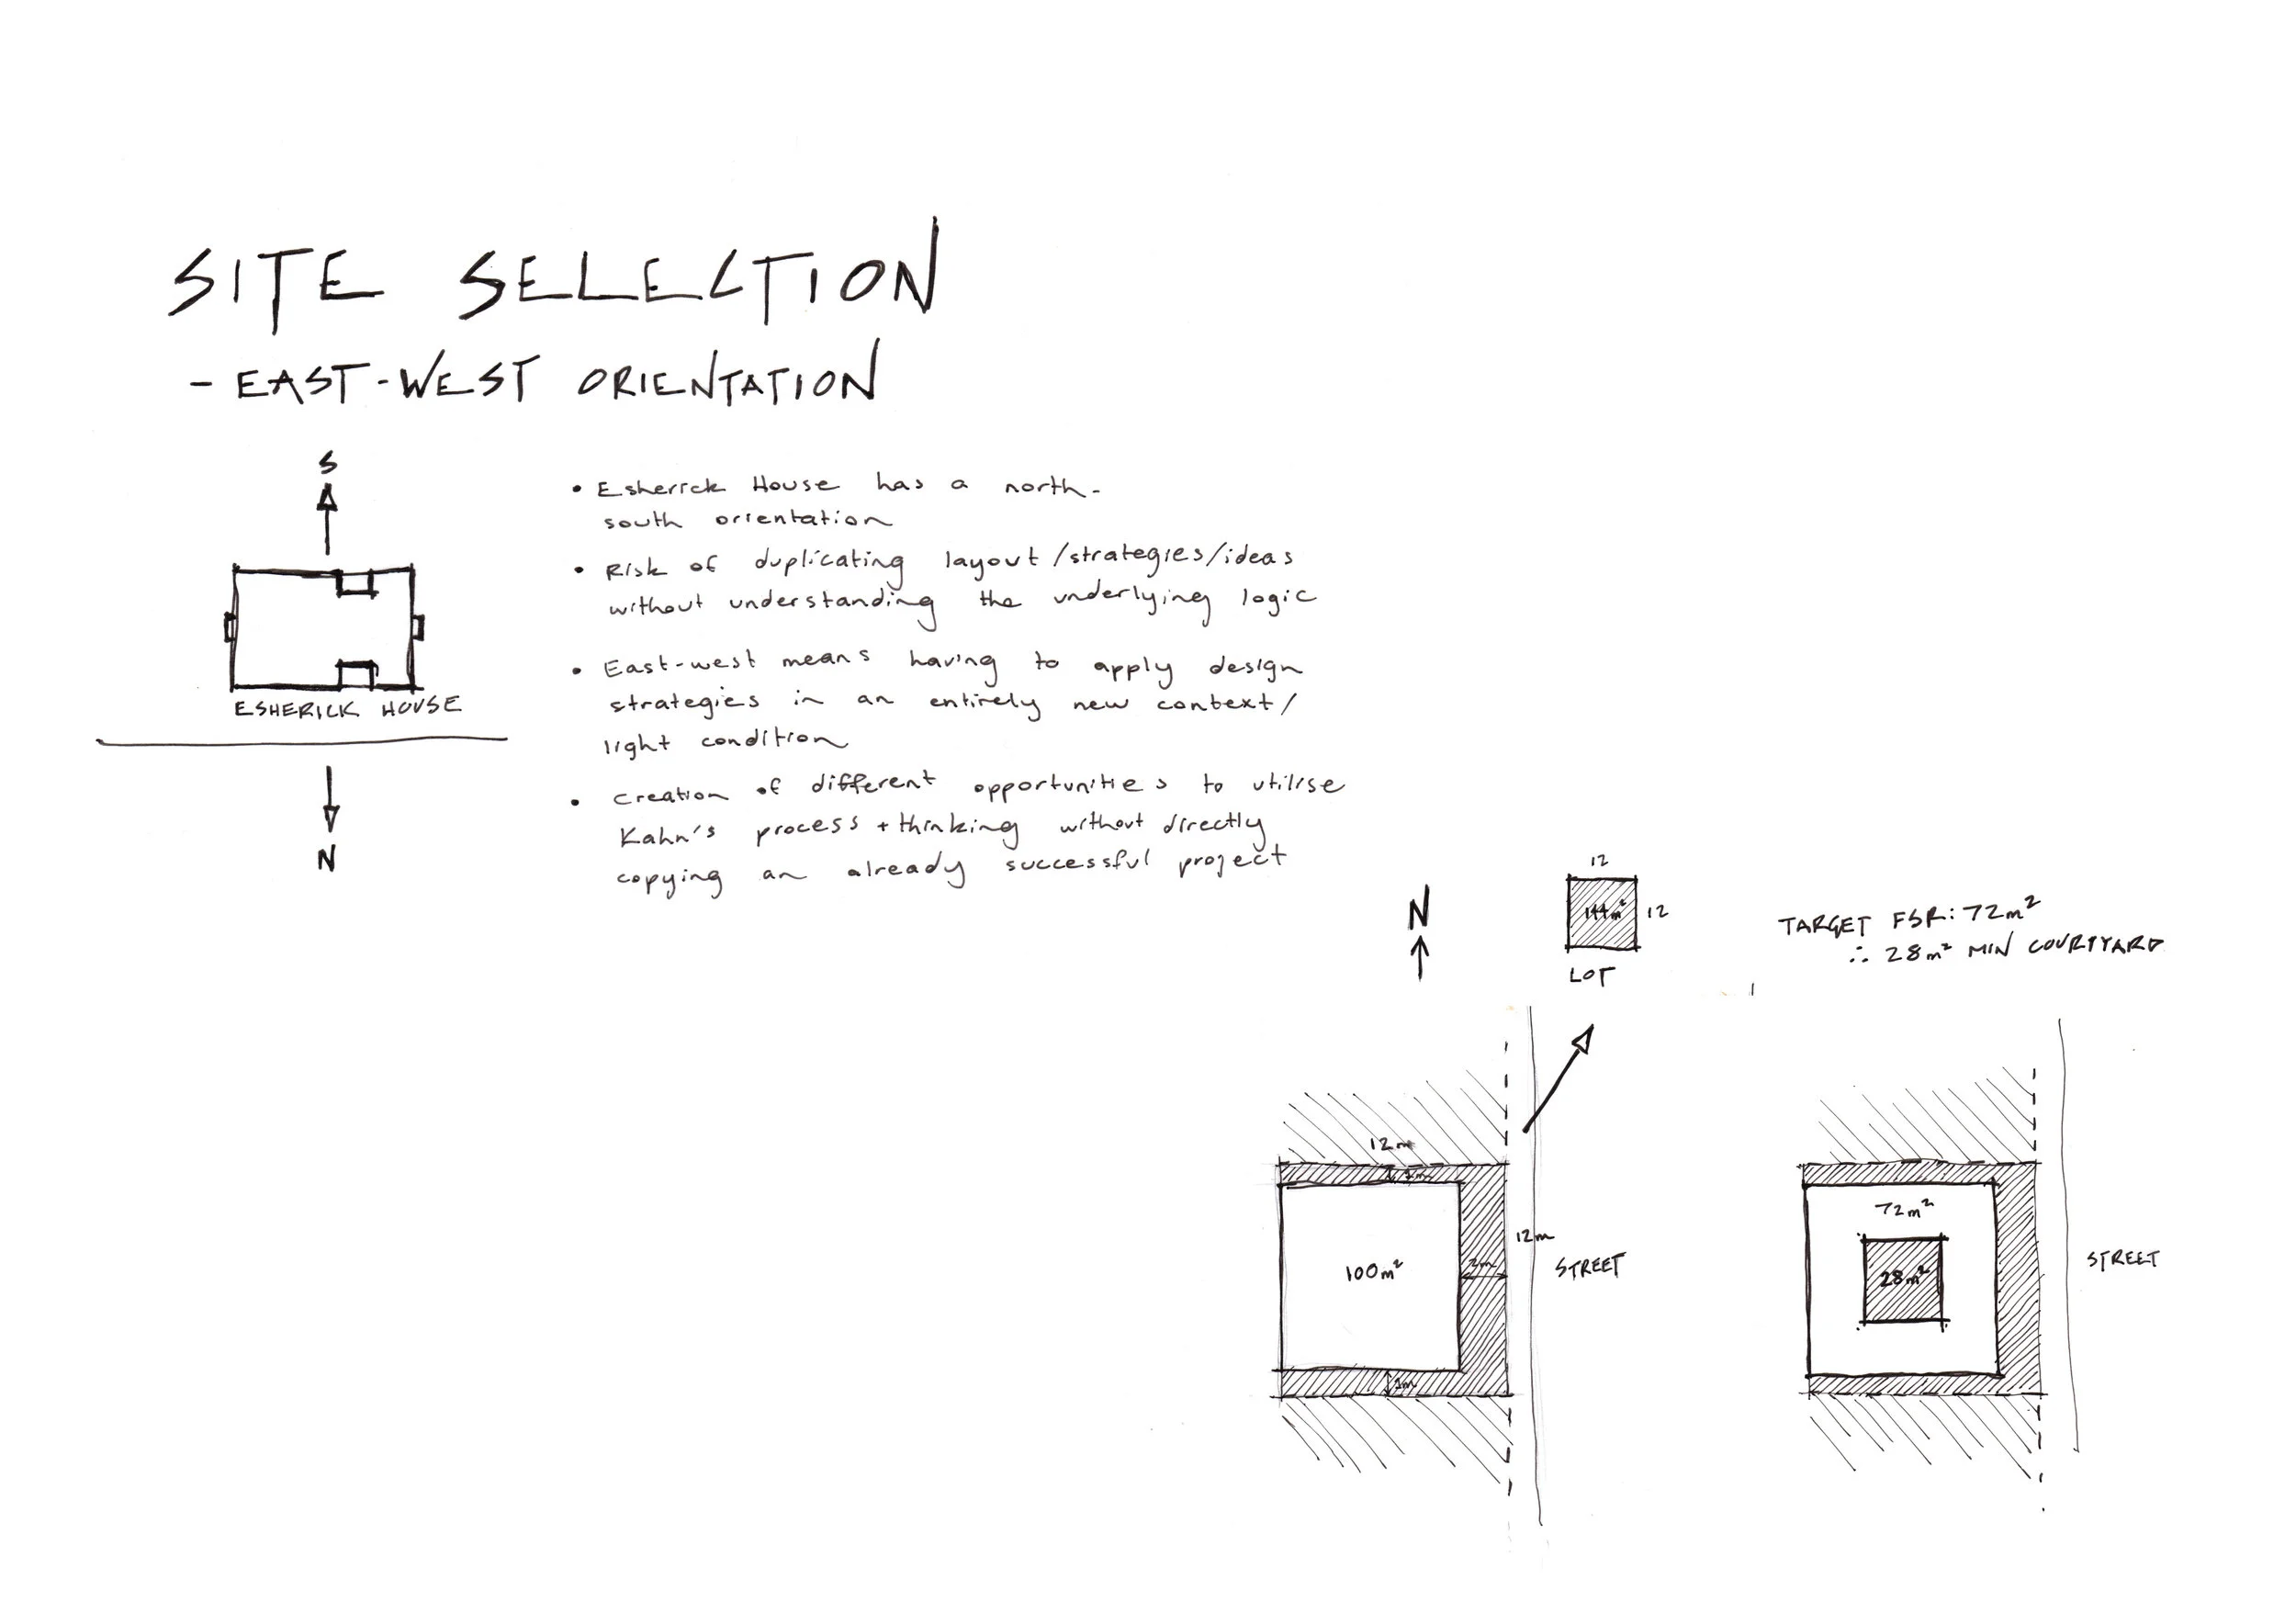 SITE SELECTION
- EAST-WEST ORIENTATION
S
ESHERICK HOUSE
N
• Esherick House has a north-
south orientation
• Risk of duplicating layout/strategies/ideas
without understanding the underlying logic
• East-west means having to apply design
strategies in an entirely new context/
light condition
• Creation of different opportunities to utilise
Kahn's process + thinking without directly
copying an already successful project
N
12
144m²
12
LOT
TARGET FSR: 72m²
∴ 28m² MIN COURTYARD
12m
1m
12m
100m²
2m
STREET
1m
72m²
28m²
STREET